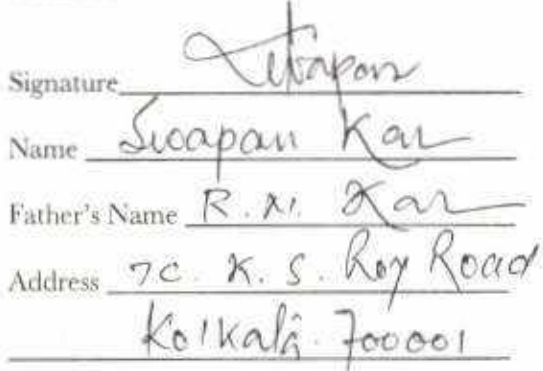 Signature
Name Swapan Kar
Father's Name R. N. Kar
Address 7C. K. S. Roy Road
Kolkata. 700001